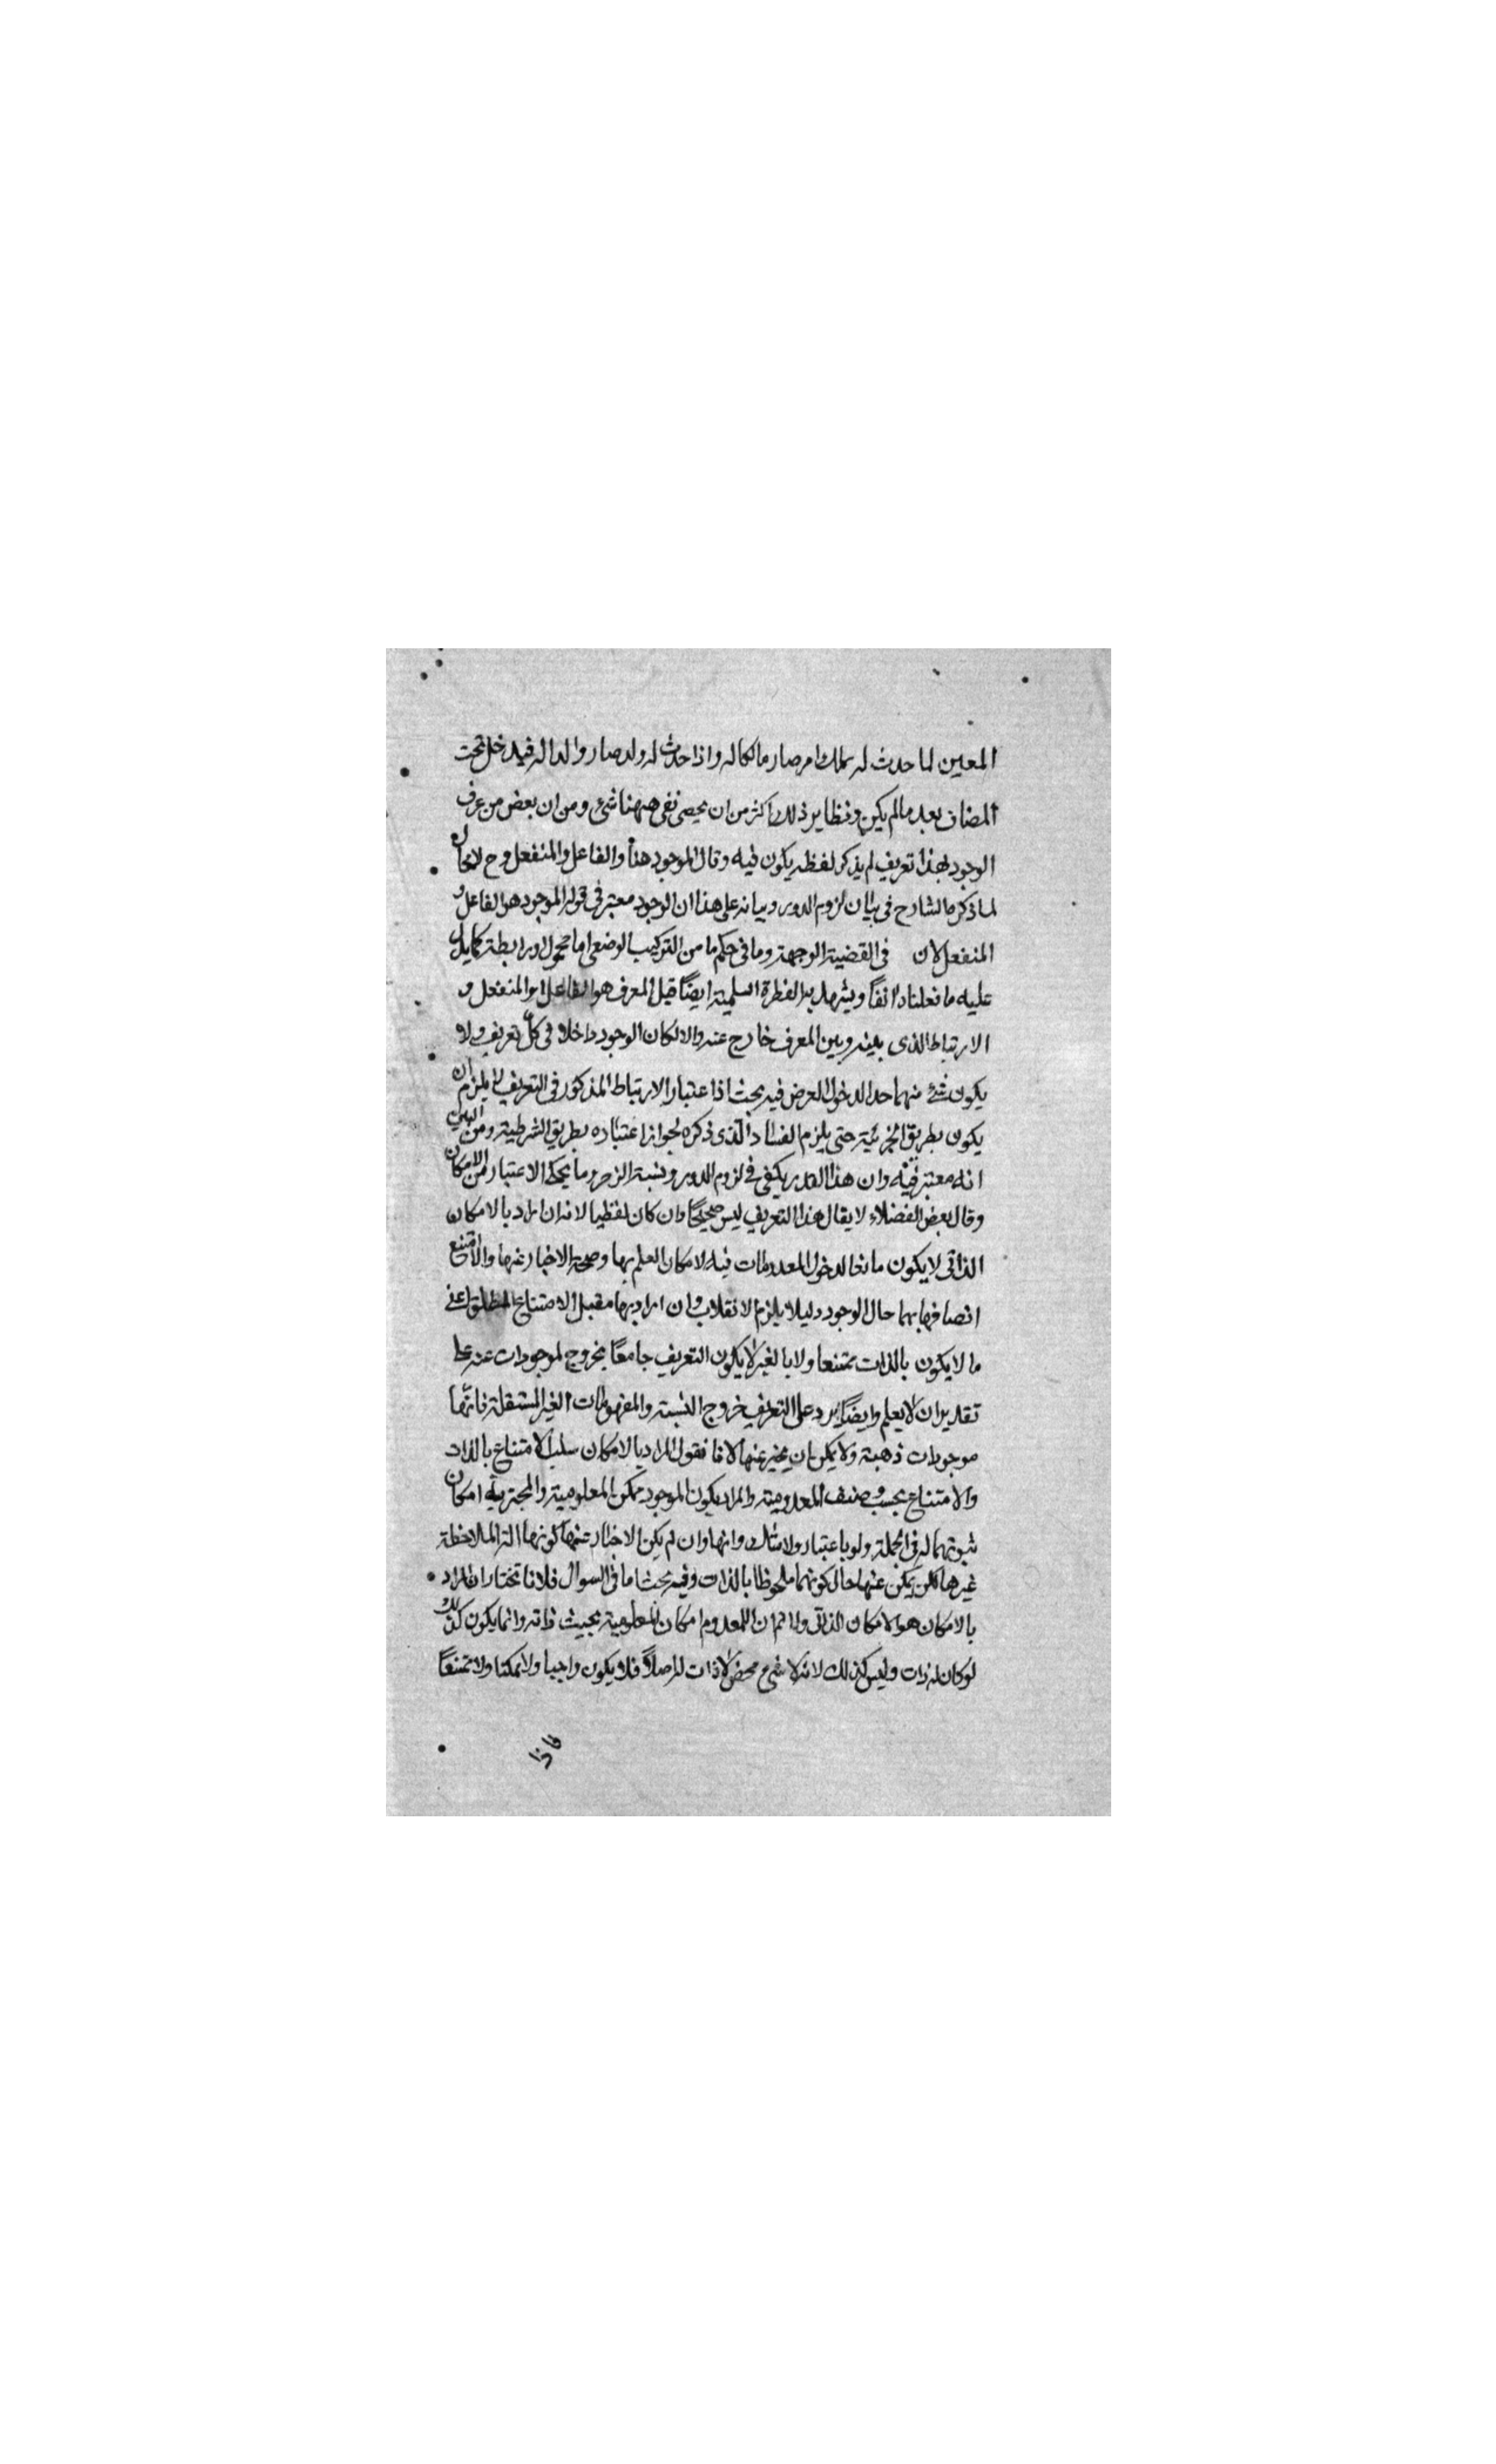 المعين لما حدث له تملك امر صار مالكا له واذا حدث له ولد صار والدا له فيدخل تحت
المضاف بعد مالم يكن ونظاير ذلك اكثر من ان يحصى نفى ههنا شئ ومن ان بعض من عرف
الوجود بهذا تعريف لم يذكر لفظه يكون فيه وقال الموجود هنا والفاعل والمنفعل وح لامكان
لما ذكره الشارح فى بيان لزوم الدور وبيانه على هذا ان الوجود معتبر فى قوله الموجود هو الفاعل و
المنفعل لان فى القضية الوجهة وما فى حكم ما من التركيب الوضعى اما محمول او رابطة كما يدل
عليه ما نعلناه انفا ويشهد به الفطرة السلمية ايضا قيل المعرف هو الفاعل او المنفعل و
الارتباط الذى بينه وبين المعرف خارج عنه والا لكان الوجود داخلا فى كل تعريف ولا
يكون شئ منهما حدا لدخول العرض فيه بحث اذا عتبار الارتباط المذكور فى التعريف لا يلزم ان
يكون بطريق الجزئية حتى يلزم الفساد الذى ذكره لجواز اعتباره بطريق الشرطية ومن البين
انه معتبر فيه وان هذا القدر يكفى فى لزوم الدور ونسبة الاعتبار من الامكان
وقال بعض الفضلاء لا يقال هذا التعريف ليس صحيحا وان كان لفظيا لانه ان اراد بالامكان
الذاتى لا يكون مانعا لدخول المعدومات فيه لامكان العلم بها وصحة الاخبار عنها والا امتنع
اتصافها بهما حال الوجود دليلا يلزم الانقلاب وان اراد بهما مقبل الامتناع المطلق اعنى
ما لا يكون بالذات ممتنعا ولا بالغير لا يكون التعريف جامعا بخروج لموجودات عنه على
تقدير ان لا يعلم وايضا يرد على التعريف خروج النسبة والمفهومات الغير المستقلة فانها
موجودات ذهنية ولا يمكن ان يخبر عنها لانا نقول المراد بالامكان سلب الامتناع بالذات
والامتناع بحسب وصف المعدومية والمراد بكون الموجود ممكن المعلومية والمخبرية امكان
ثبوتهما له فى الجملة ولو باعتبار ولا شك وانها وان لم يكن الاخبار عنها لكونها الة الملاحظة
غيرها لكن يمكن عنها حال كونها ملحوظا بالذات وفيه بحث اما فى السوال فلانا نختار ان المراد
بالامكان هو الامكان الذاتى ولا نم ان للمعدوم امكان المعلومية بحيث ذاته وانما يكون كذلك
لو كان له ذات وليس كذلك لانه لا شئ محض لا ذات له اصلا فلا يكون واجبا ولا ممكنا ولا ممتنعا